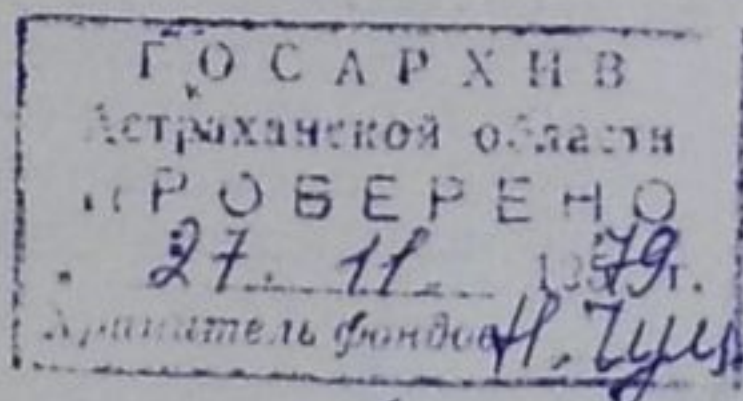 ГОСАРХИВ
Астраханской области
ПРОВЕРЕНО
27. 11. 1979 г.
Хранитель фондов Н.